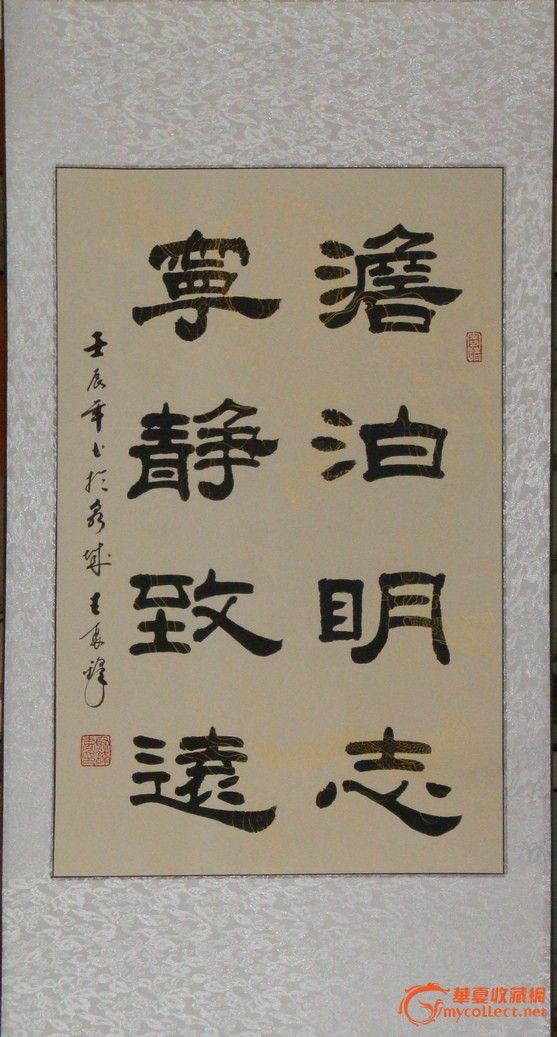 澹泊明志
寧靜致遠
壬辰年书於泉城王春鋒
華夏收藏網
mycollect.net